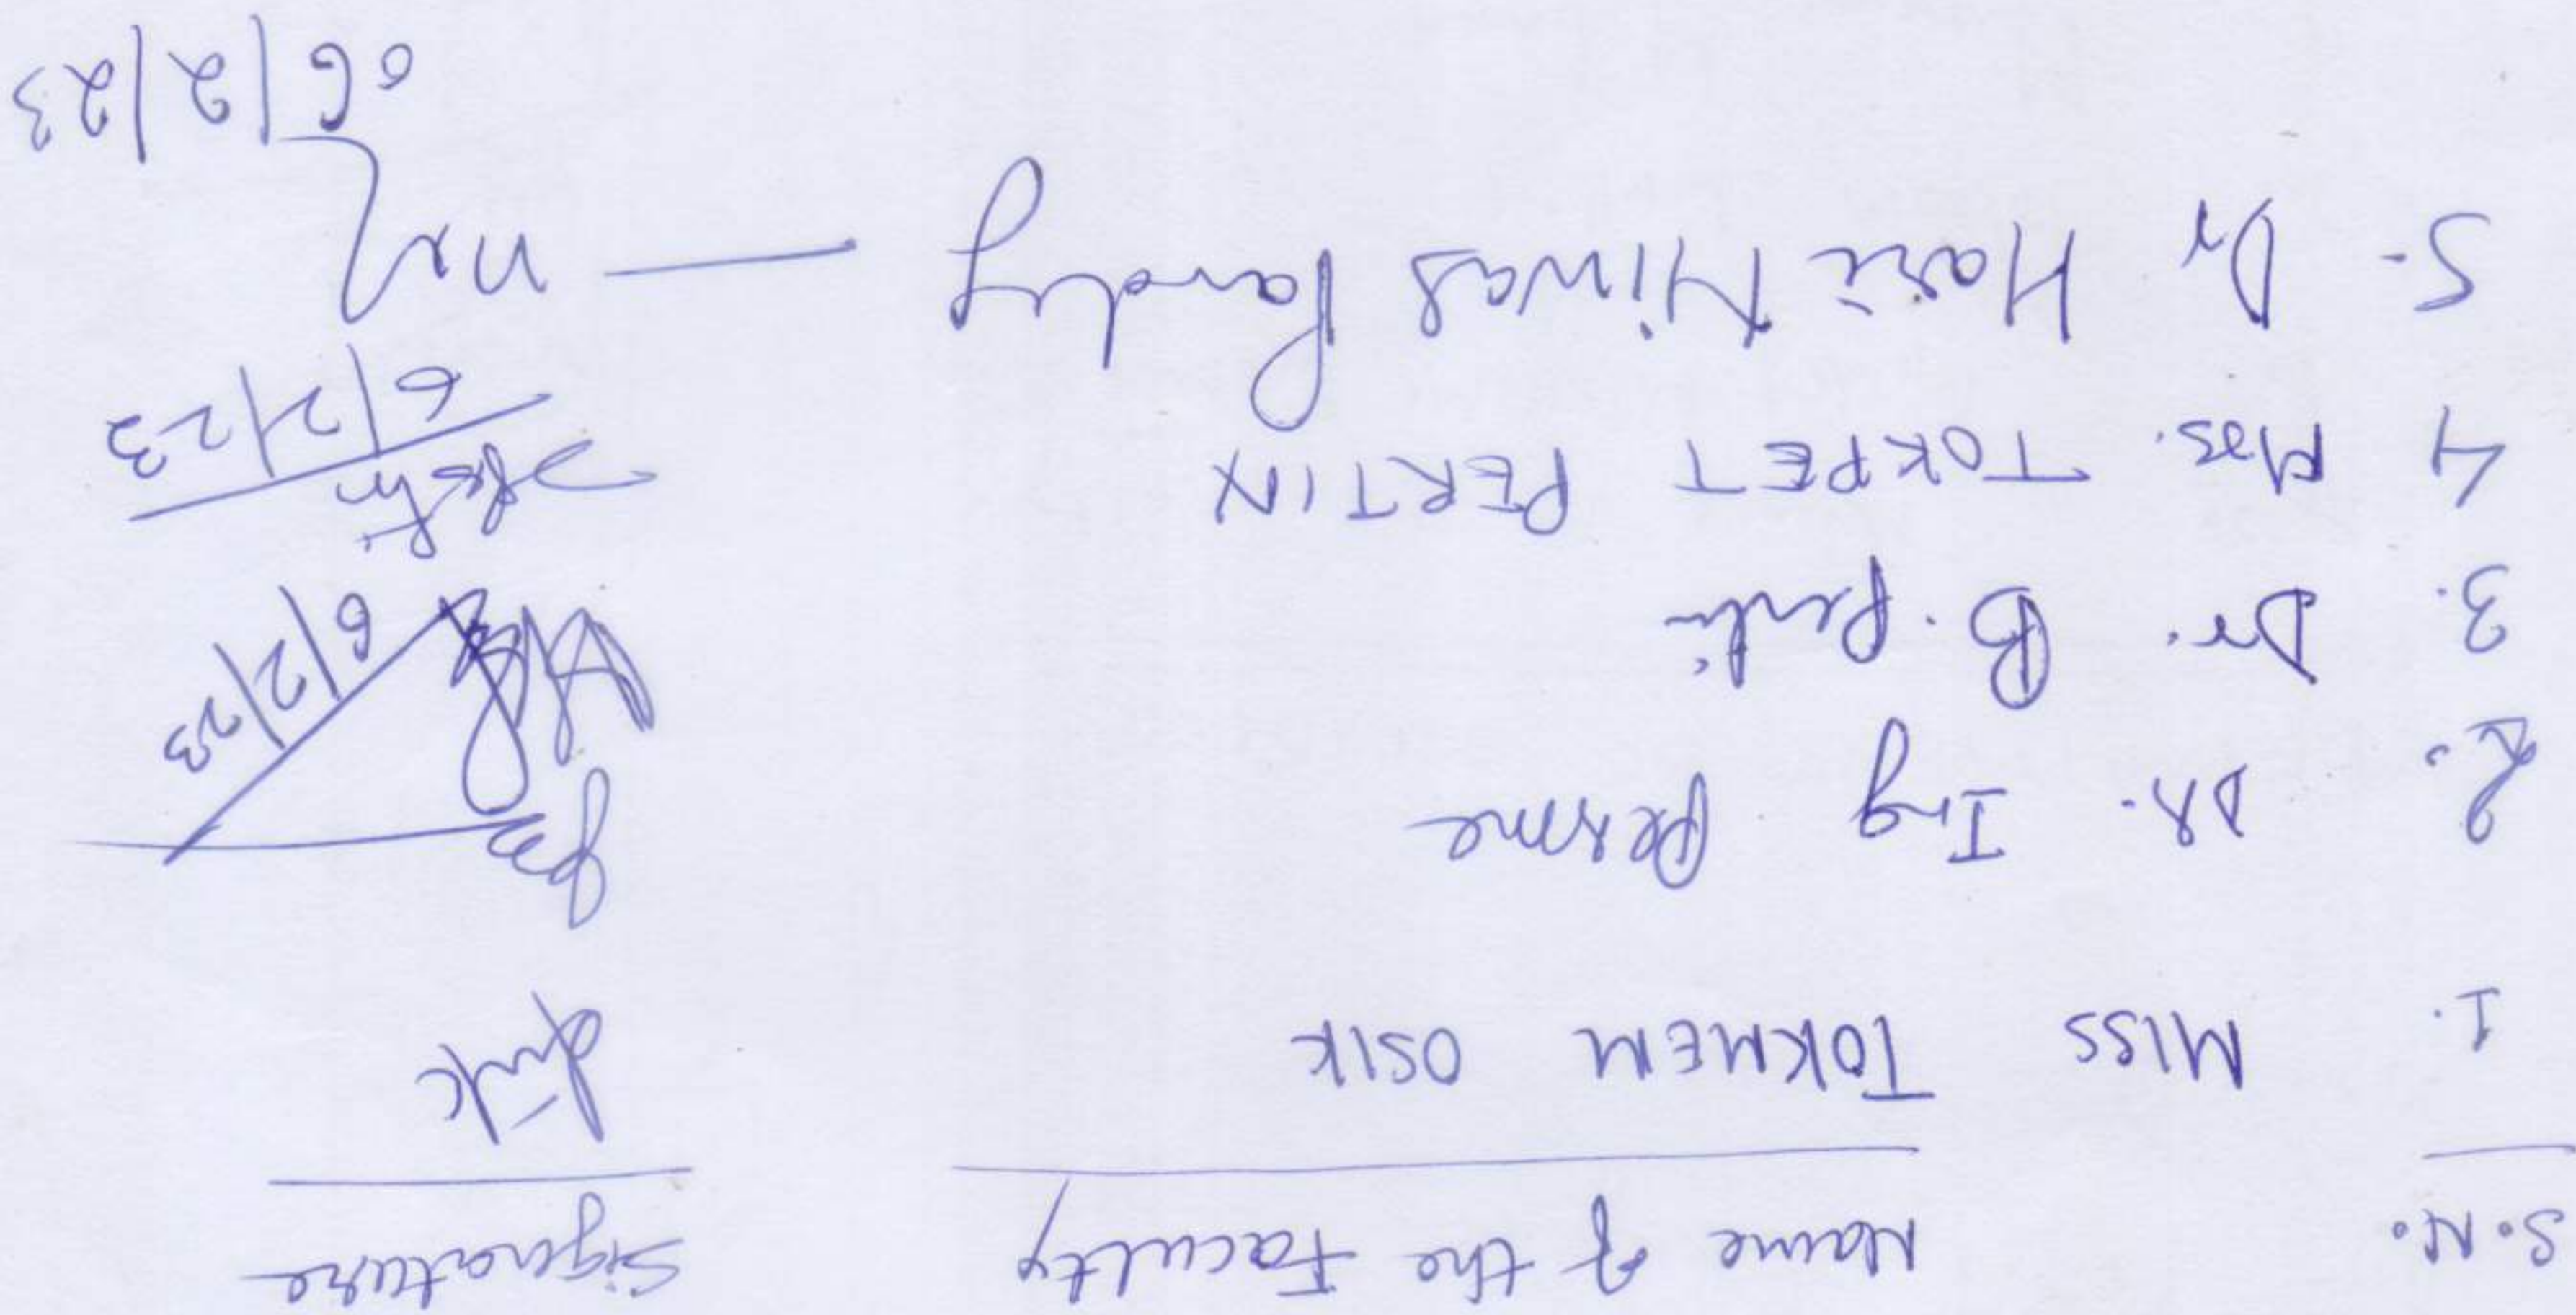 S.N. Name of the Faculty Signature
1. MISS TOKMEM OSIK
2. DR. Ing Perme
3. Dr. B. Perti 6/2/23
4 Mrs. TOKPET PERTIN 6/2/23
5. Dr Hari Niwas Pandey — 06/2/23